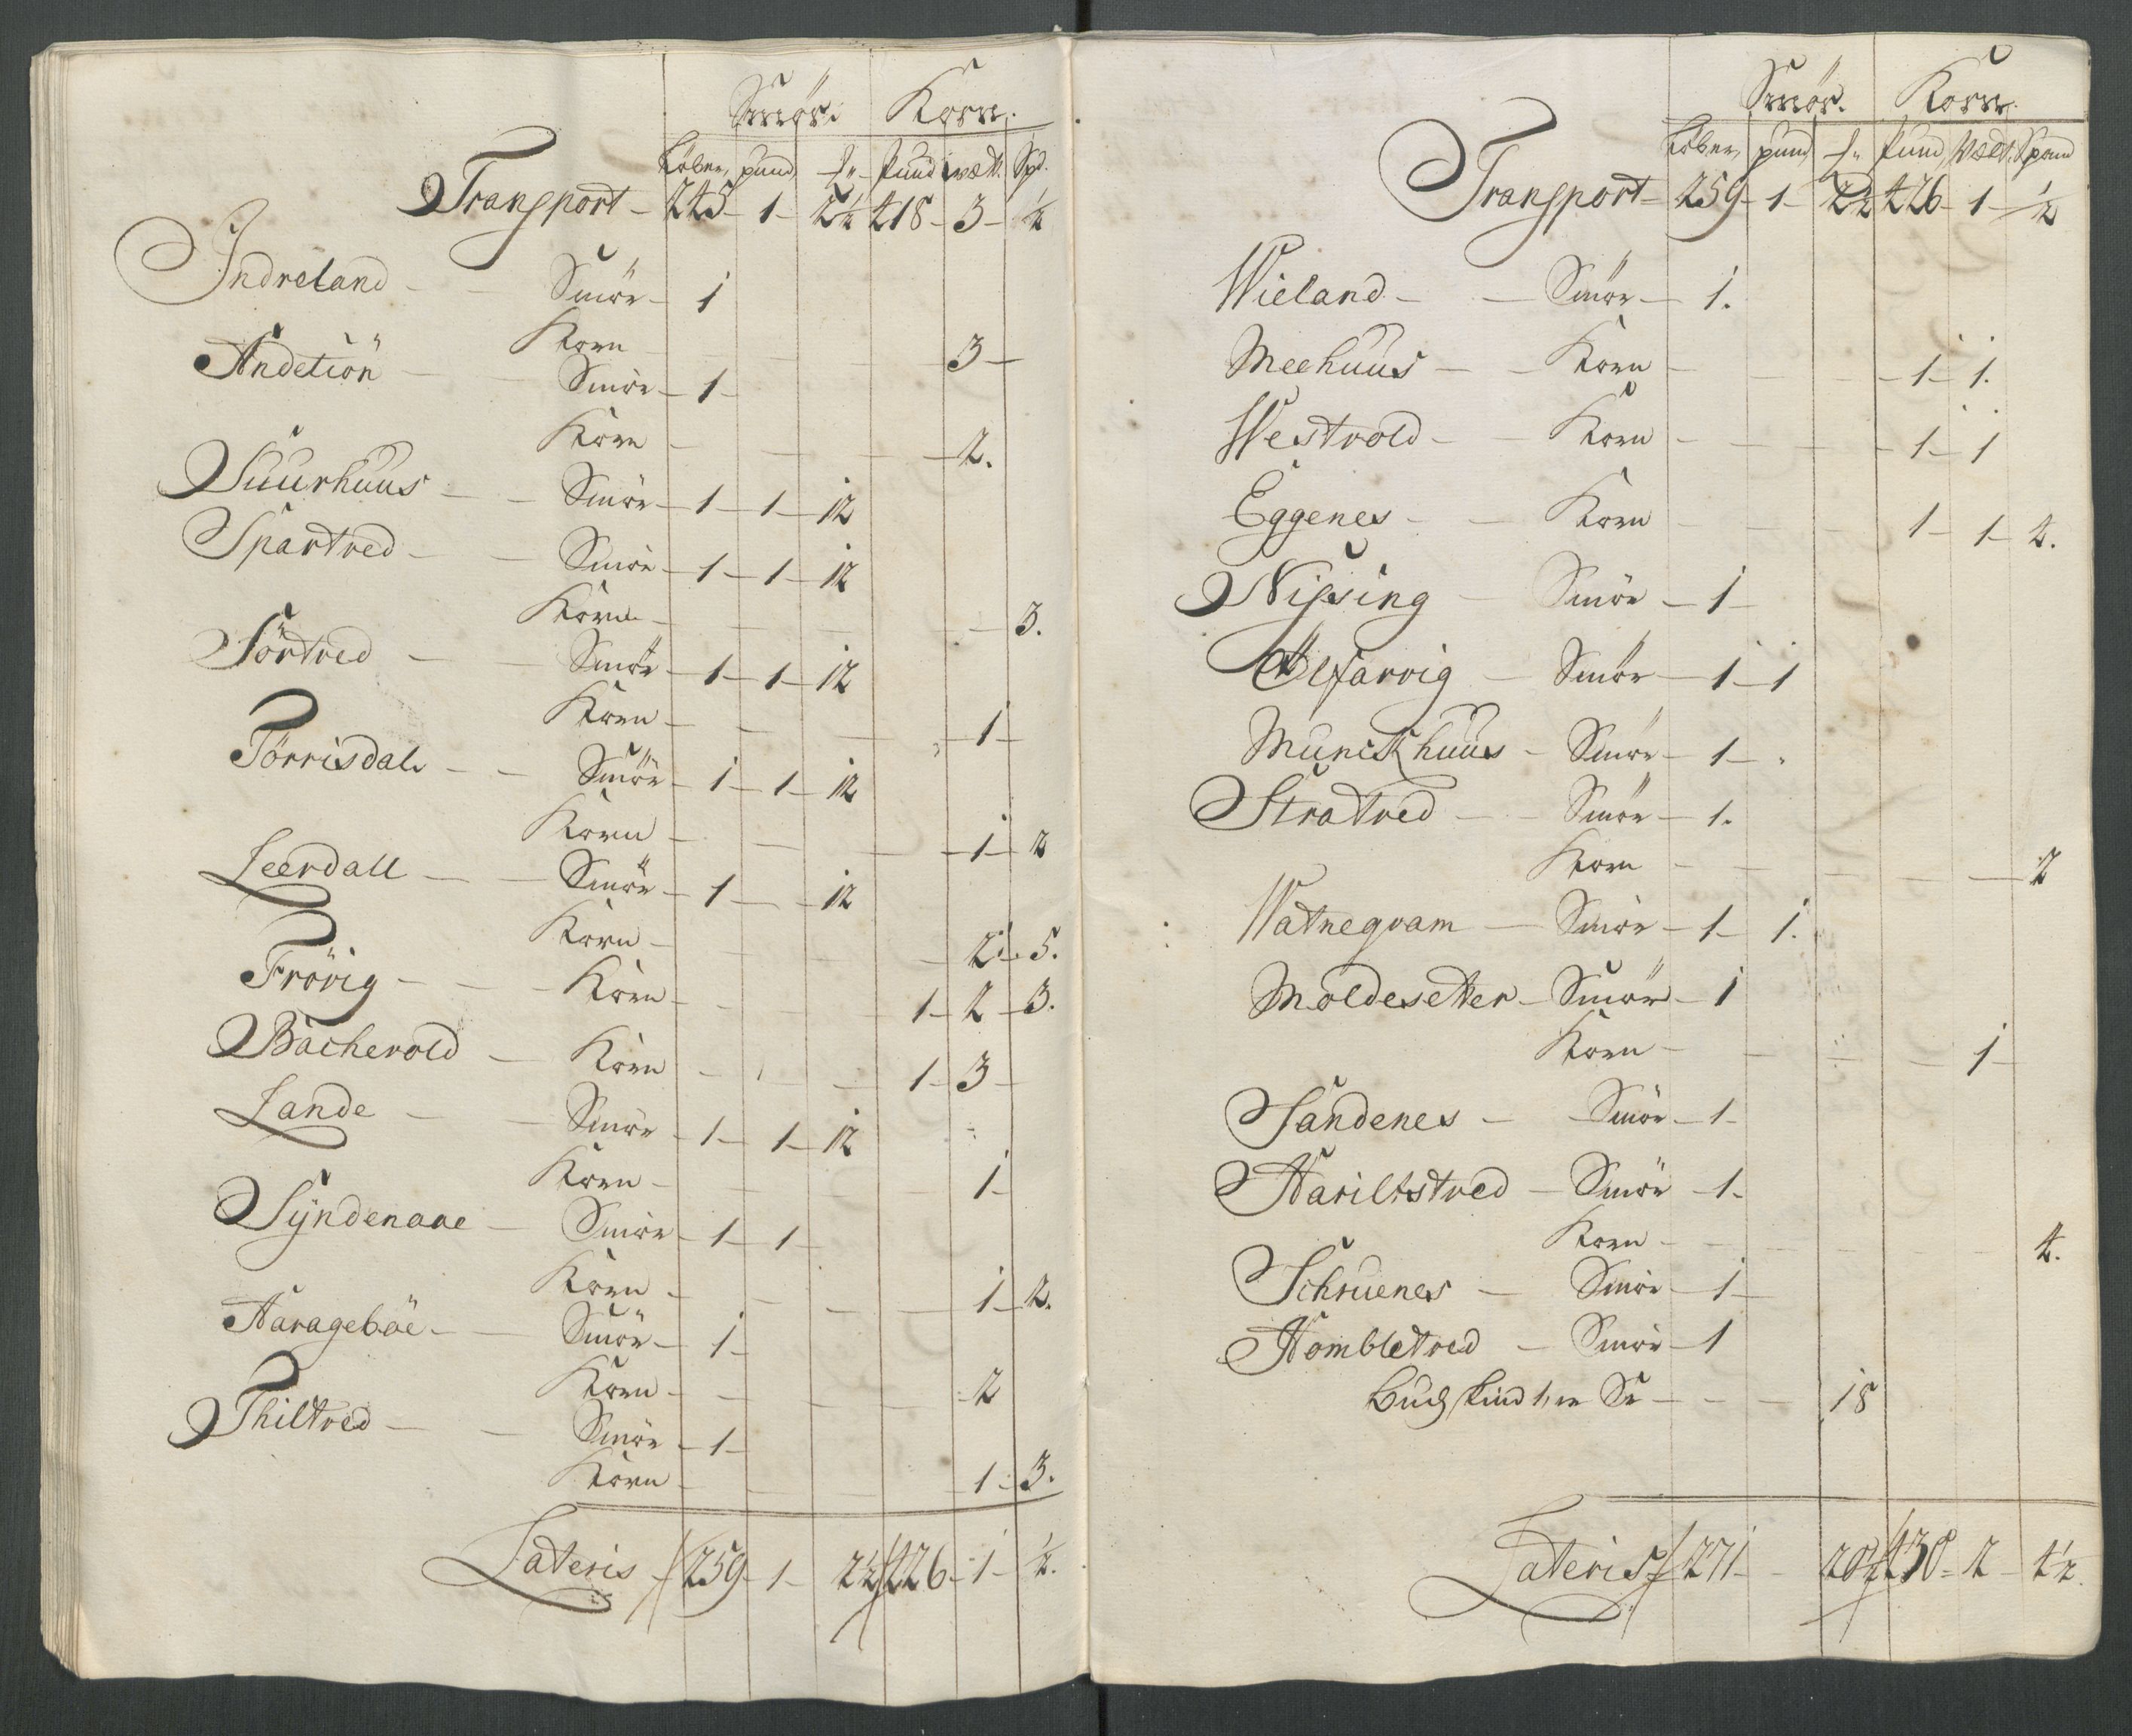 Smör. Korn.
Löber, pund, ℔ Pund wætt. Spd.
Transport – 245 – 1 – 2½ 418 – 3 – ½
Indreland – – Smör – 1
Korn – – – – 3 –
Andetiön – – Smör – 1 –
Korn – – – – 2.
Suurhuus – – Smör – 1 – 1 – 12
Spartved – – Smör – 1 – 1 – 12
Korn – – – – 3.
Törtved – – Smör – 1 – 1 – 12
Korn – – – – 1 –
Törrisdal – – Smör – 1 – 1 – 12
Korn – – – – 1 – 2
Leerdall – – Smör – 1 – – 12
Korn – – – – 2 – 5.
Frövig – – – Korn – – – – 1 – 2 – 3.
Bachevold – Korn – – – 1 – 3 –
Lande – – Smör – 1 – 1 – 12
Korn – – – – 1 –
Syndenaae – Smör – 1 – 1 –
Korn – – – – 1 – 2.
Haragebøe – – Smör – 1 –
Korn – – – – 2
Thiltved – – Smör – 1 –
Korn – – – – 1 – 3.
Lateris – 259 – 1 – 2½ 426 – 1 – ½.
Smör. Korn.
Löber, pund ℔ Pund Wætt. Spand
Transport – 259 – 1 – 2½ 426 – 1 – ½
Wieland – – Smör – 1.
Meehuus – – Korn – – – – 1 – 1.
Westvold – – Korn – – – – 1 – 1
Eggenes – – Korn – – – 1 – 1 – 2.
Nissing – Smör – 1 –
Ølfarvig – Smör – 1 – 1
Munckhuus – Smör – 1 –
Stratved – – Smör – 1.
Korn – – – – – 2
Watneqvam – Smör – 1 – 1.
Moldesetter – Smör – 1
Korn – – – – 1 –
Sandenes – – Smör – 1 –
Hariltstved – Smör – 1 –
Korn – – – – – 4.
Schruenes – Smör – 1 –
Hombletved – Smör – 1
Buchskind – – – 18
Lateris 271 – – 20½ 430 – 2 – 4½.